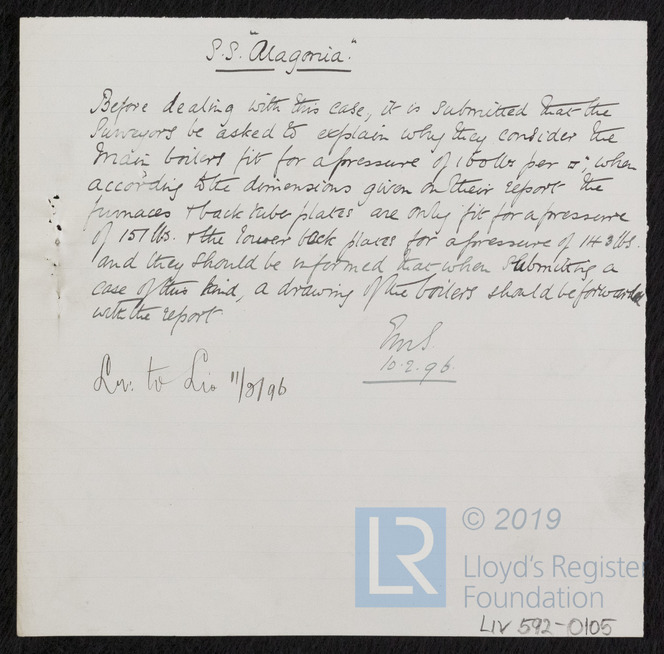 S.S. "Alagonia".
Before dealing with this case, it is submitted that the
Surveyors be asked to explain why they consider the
Main boilers fit for a pressure of 160 lbs per □", when
according to the dimensions given on their report the
furnaces & back tube plates are only fit for a pressure
of 151 lbs. & the lower back plates for a pressure of 143 lbs.
and they should be informed that when submitting a
case of this kind, a drawing of the boilers should be forwarded
with the report
10.2.96.
to 11/2/96
© 2019
LR
Lloyd's Register
Foundation
LIV 592-0105